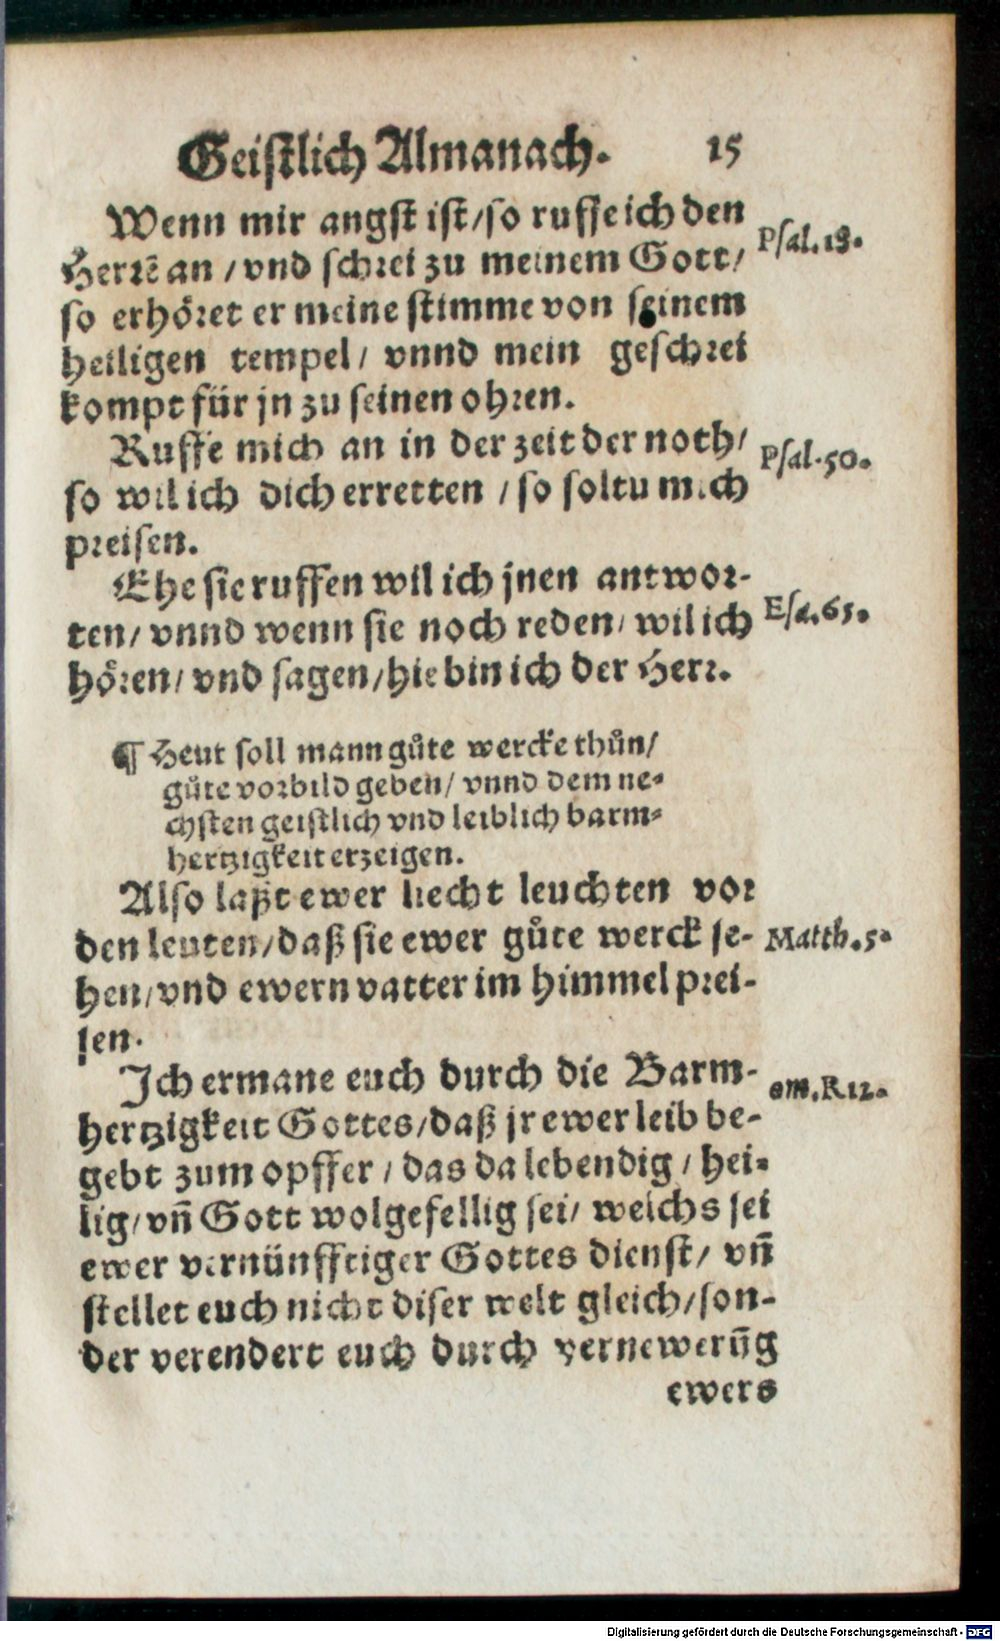 Geistlich Almanach. 15
Wenn mir angst ist/so ruffe ich den
Psal.18.
Herrē an/vnd schrei zu meinem Gott/
so erhöret er meine stimme von seinem
heiligen tempel/ vnnd mein geschrei
kompt für jn zu seinen ohren.
Ruffe mich an in der zeit der noth/
Psal.50.
so wil ich dich erretten/so soltu mich
preisen.
Ehe sie ruffen wil ich jnen antwor-
Esa.65.
ten/vnnd wenn sie noch reden/wil ich
hören/vnd sagen/hie bin ich der Herr.
¶ Heut soll mann gůte wercke thůn/
gůte vorbild geben/ vnnd dem ne-
chsten geistlich vnd leiblich barm-
hertzigkeit erzeigen.
Also laßt ewer liecht leuchten vor
den leuten/daß sie ewer gůte werck se-
Matth.5.
hen/vnd ewern vatter im himmel prei-
sen.
Ich ermane euch durch die Barm-
om.R12.
hertzigkeit Gottes/daß jr ewer leib be-
gebt zum opffer/das da lebendig/hei-
lig/vñ Gott wolgefellig sei/ welchs sei
ewer vernünfftiger Gottes dienst/ vñ
stellet euch nicht diser welt gleich/son-
der verendert euch durch vernewerũg
ewers
Digitalisierung gefördert durch die Deutsche Forschungsgemeinschaft - DFG